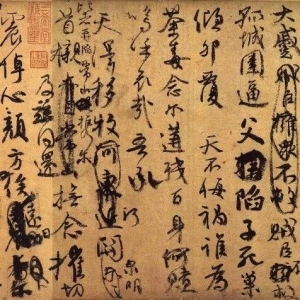 大蹙賊臣不救
孤城圍逼父陷子死巢
傾卵覆天不悔禍誰為
荼毒念爾遘殘百身何贖
嗚呼哀哉吾承
天澤移牧河關
泉明
比者再陷常山攜爾
首櫬
及茲同還
撫念摧切
震悼心顏方俟遠日